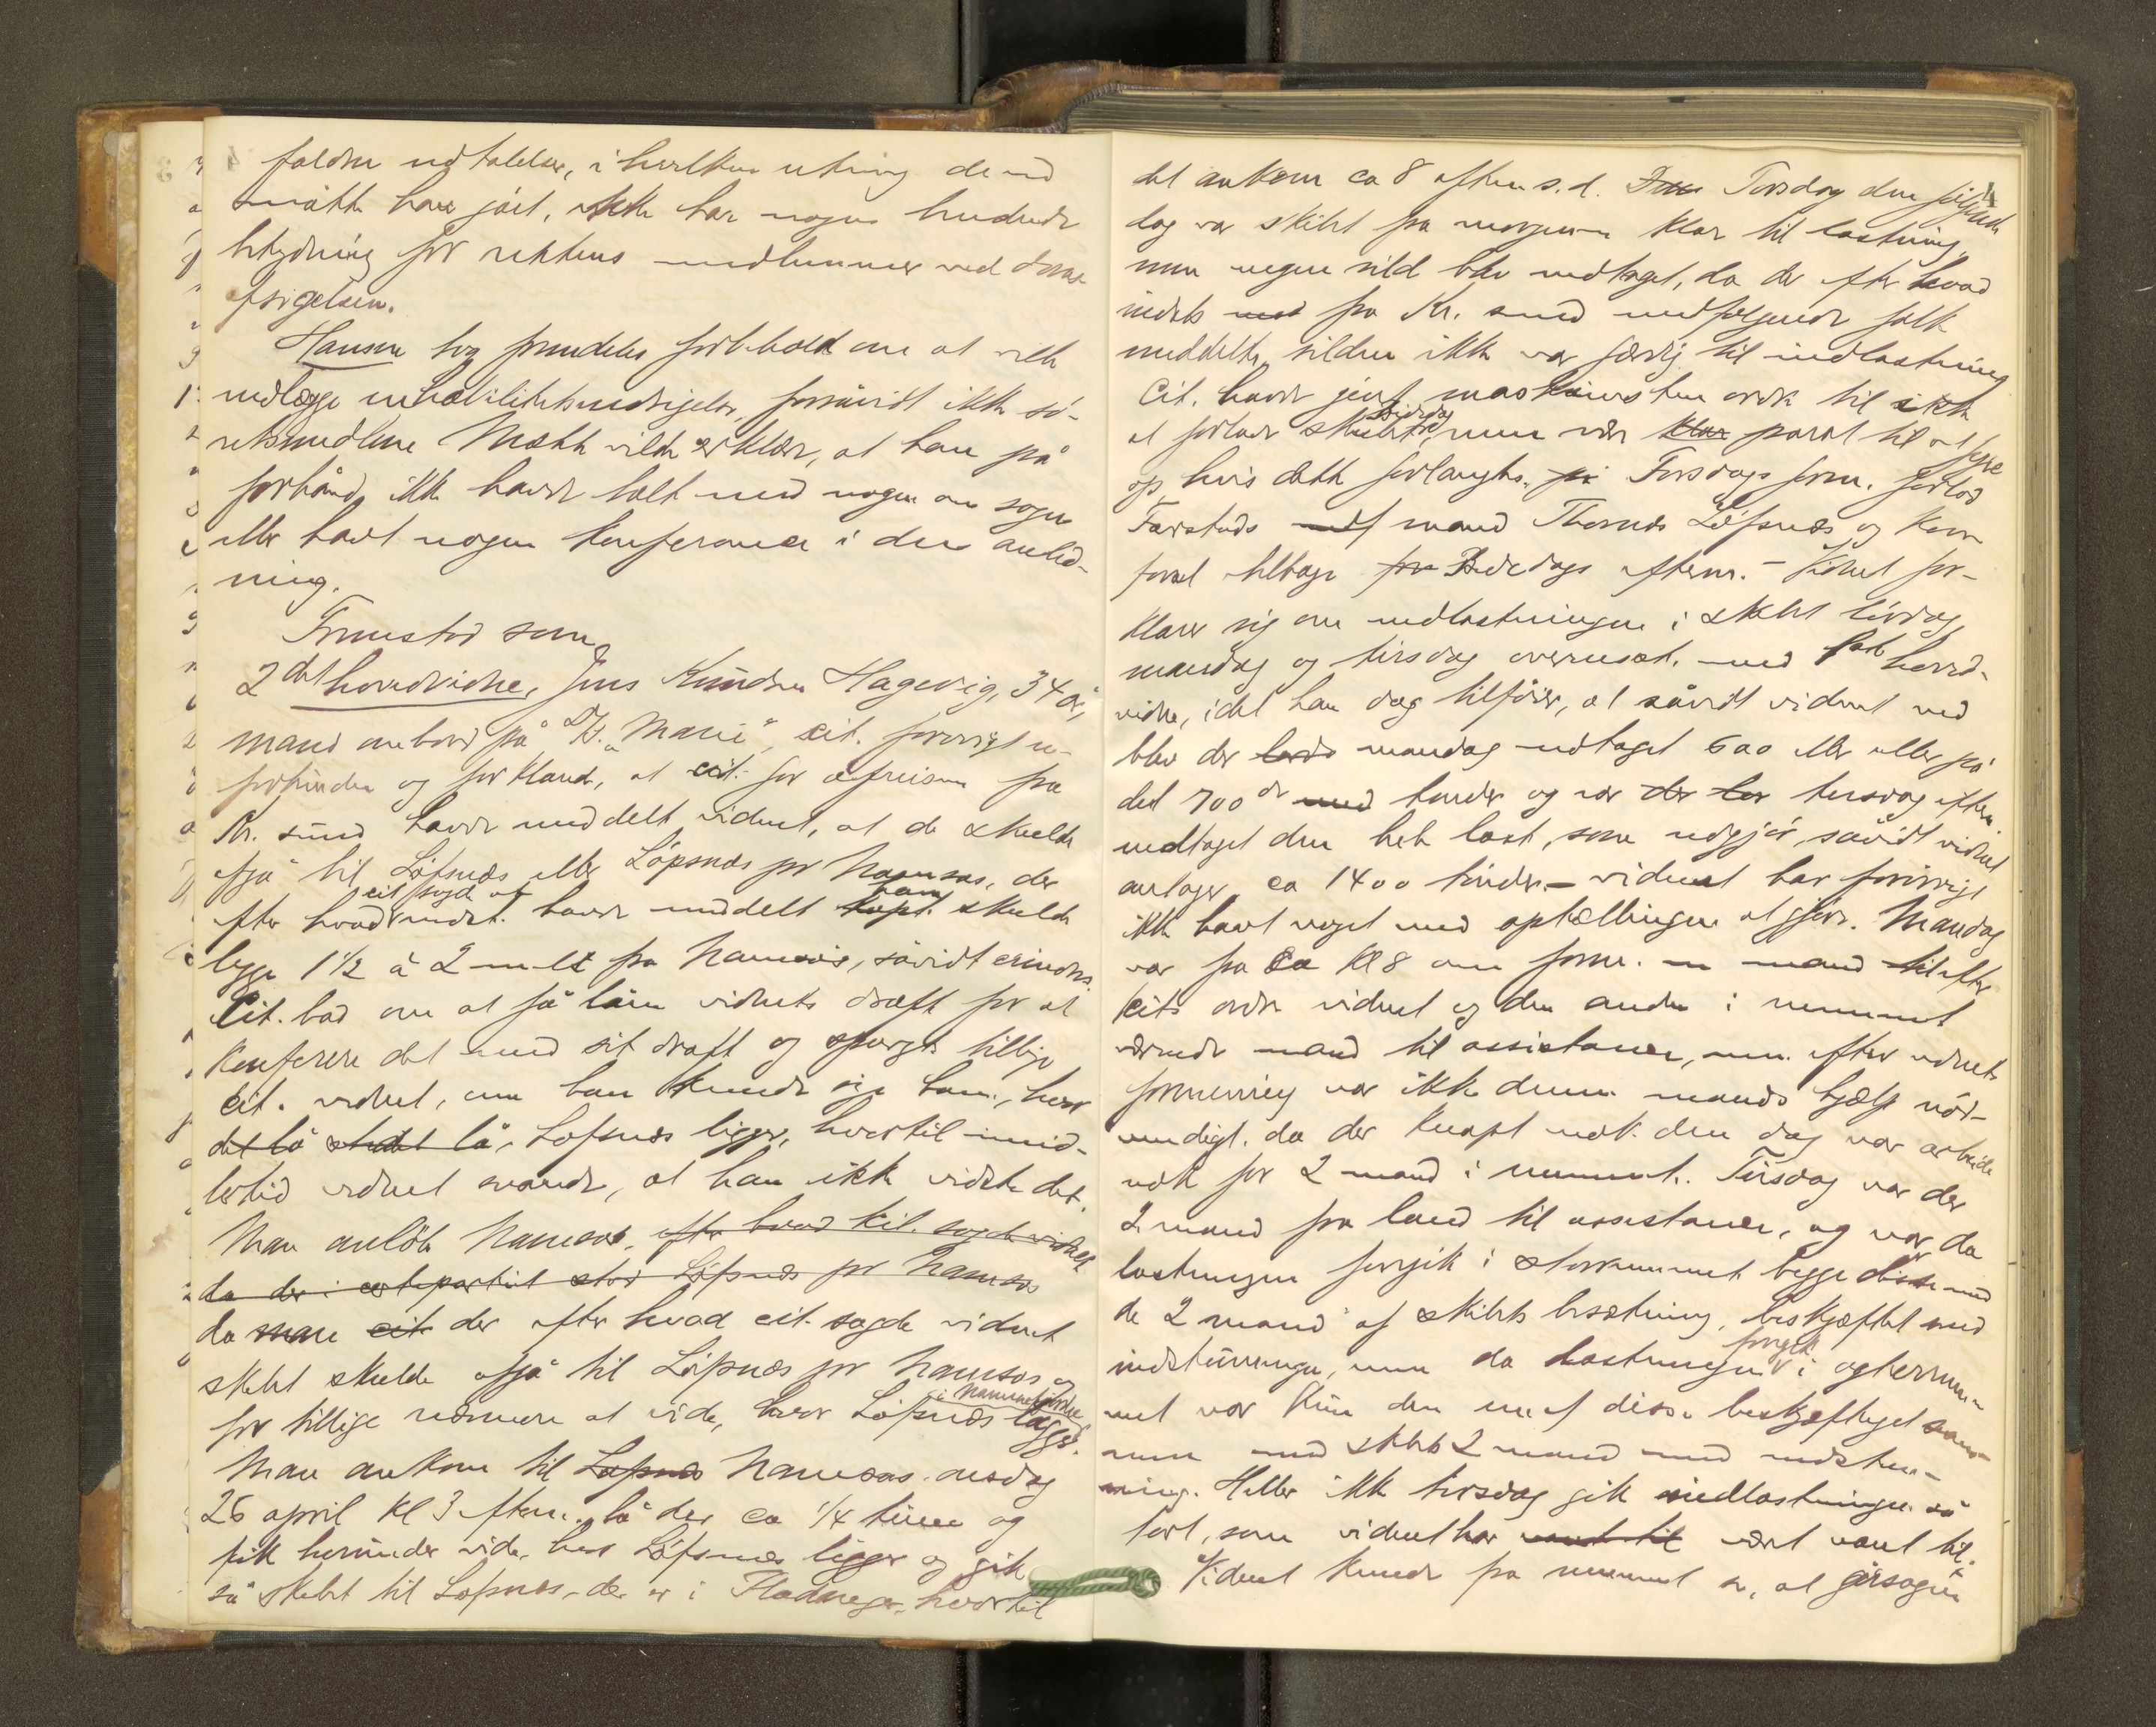 faldne udtalelser, i hvilken retning de end
måtte have gået, ikke har nogen hindrende
betydning for rettens medlemmer ved doms-
afsigelsen.
Hansen tog fremdeles forbehold om at ville
nedlægge inhabilitetsindsigelse, forsåvidt ikke sö-
retsmedlem Møkk vilde erklære, at han på
forhånd ikke havde talt med nogen om sagen
eller havt nogen konferance i den anled-
ning.
Fremstod som
2det hovedvidne, Jens Knudsen Hagevig, 34 år,
mand ombord på D/S. "Marie", cit. forövrigt u-
forbunden og forklared, at cit. för afreisen fra
Kr. sund havde meddelt vidnet, at de skulde
afgå til Löfsnæs eller Löpsnæs pr Namsos, der
efter hvad cit sagde at havde meddelt ham skulde
ligge 1 1/2 à 2 mil fra Namsos, såvidt erindres.
Cit. bad om at få låne vidnets draft for at
konferere det med sit draft og spurgte tillige
cit. vidnet, om han kunde sige ham, hvor
det lå Lofsnæs ligger, hvortil imid-
lertid vidnet svarede, at han ikke vidste det.
Man anlöb Namsos, efter hvad cit. sagde vidnet
da der i certepartiet stod Löfsnæs pr Namsos
da man cit der efter hvad cit. sagde vidnet
skibet skulde afgå til Löpsnæs pr Namsos og
for tillige nærmere at vide, hvor Löpsnæs i Namsenfjorden lå
Man ankom til Lopsnæs Namsos onsdag
26 april kl 3 efterm. lå der ca 1/4 time og
fik herunder vide, hvor Löfsnæs ligger og gik
så skibet til Lopsnæs, der er i Fladanger, hvortil
4
det ankom ca 8 aften s. d. Torsdag den fölgende
dag var skibet fra morgenen klar til lastning,
men ingen sild blev indtaget, da der efter hvad
fra Kr. sund medfølgende folk
meddelte, silden ikke var færdig til indlastning
Cit. havde givet maskinisten ordre til ikke
at forlade skibet, men være klar parat til at fyre
op, hvis dette forlangtes. Torsdags form. forlod
Farstads mand Thomas Löfsnæs og kom
först tilbage fredags efterm. - Vidnet for-
klarer sig om indlastningen i skibet lördag,
mandag og tirsdag overensst. med 1ste hoved-
vidne, idet han dog tilföier, at såvidt vidnet ved
blev der mandag indtaget 600 eller eller på
det 700de tönder og var der tirsdag efterm.
indtaget den hele last, som udgjör, såvidt vidnet
antager ca 1400 tönder. - vidnet har forövrigt
ikke havt noget med optællingen at gjöre. Mandag
var fra ca Kl 8 om form. en mand til efter
cits ordre vidnet og den anden i rummet
værende mand til assistance, men efter vidnets
formening var ikke denne mands hjælp nöd-
vendigt, da der knapt nok den dag var arbeide
nok for 2 mand i rummet. Tirsdag var der
2 mand fra land til assistance, og var, da
lastningen foregik i storrummet begge disse med
de 2 mand af skibets besætning, beskjæftiget med
indstuvningen, men da lastningen foregik i agterrum-
met var kun den ene af disse beskjæftiget sam-
men med skibets 2 mand med indstuv-
ning. Heller ikke tirsdag gik indlastningen så
fort, som vidnet har vært vant til.
Vidnet kunde fra rummet se, at